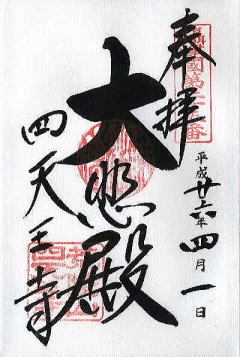 奉拝
平成廿六年四月一日
大悲殿
四天王寺